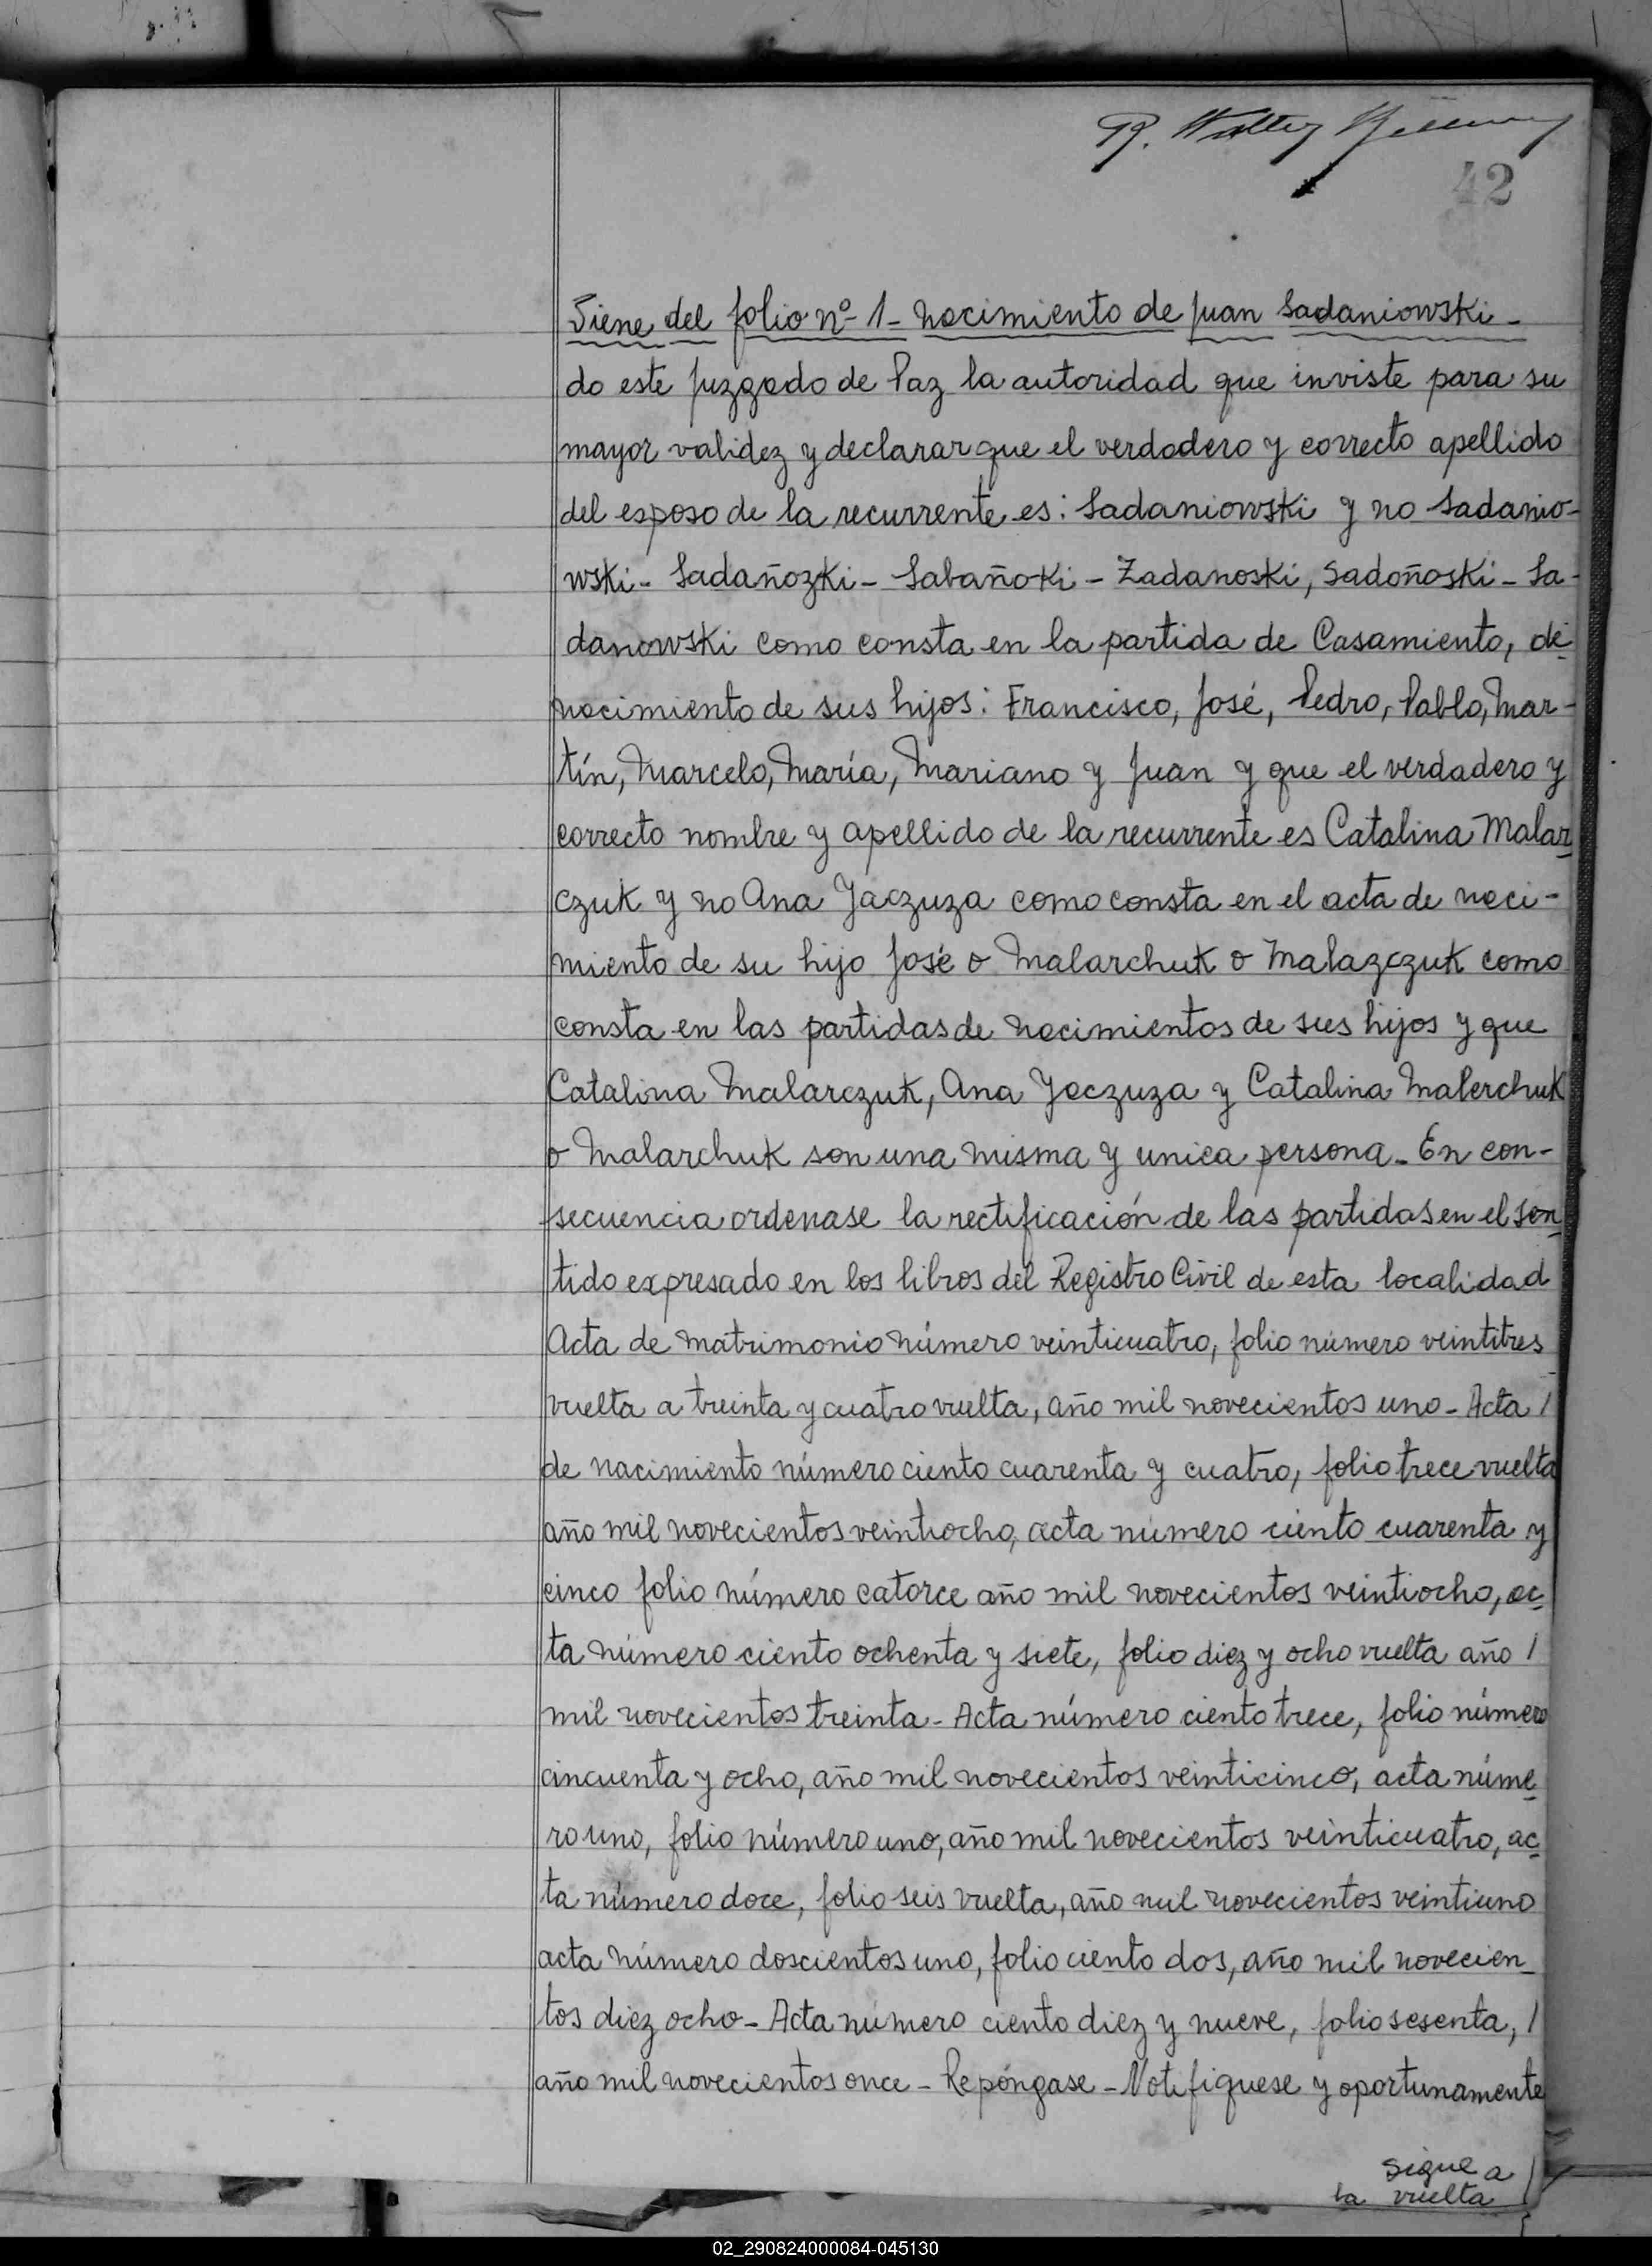 R. Walter
42
Viene del folio nº 1 - nacimiento de Juan Sadaniowski -
do este Juzgado de Paz la autoridad que inviste para su
mayor validez y declarar que el verdadero y correcto apellido
del esposo de la recurrente es: Sadaniowski y no Sadanio-
wski - Sadañozki - Sabañoki - Zadanoski, Sadoñoski - Sa-
danowski como consta en la partida de Casamiento, de
nacimiento de sus hijos: Francisco, José, Pedro, Pablo, Mar-
tín, Marcelo, María, Mariano y Juan y que el verdadero y
correcto nombre y apellido de la recurrente es Catalina Malar
czuk y no Ana Jaczuza como consta en el acta de naci-
miento de su hijo José o Malarchuk o Malazczuk como
consta en las partidas de nacimientos de sus hijos y que
Catalina Malarczuk, Ana Jaczuza y Catalina Malerchuk
o Malarchuk son una misma y unica persona - En con-
secuencia ordenase la rectificación de las partidas en el sen
tido expresado en los libros del Registro Civil de esta localidad
Acta de matrimonio número veinticuatro, folio número veintitres
vuelta a treinta y cuatro vuelta, año mil novecientos uno - Acta /
de nacimiento número ciento cuarenta y cuatro, folio trece vuelta
año mil novecientos veintiocho, acta número ciento cuarenta y
cinco folio número catorce año mil novecientos veintiocho, ac
ta número ciento ochenta y siete, folio diez y ocho vuelta año /
mil novecientos treinta - Acta número ciento trece, folio número
cincuenta y ocho, año mil novecientos veinticinco, acta núme
ro uno, folio número uno, año mil novecientos veinticuatro, ac
ta número doce, folio seis vuelta, año mil novecientos veintiuno
acta número doscientos uno, folio ciento dos, año mil novecien_
tos diez ocho - Acta número ciento diez y nueve, folio sesenta, /
año mil novecientos once - Repóngase - Notifiquese y oportunamente
sigue a
la vuelta
02_290824000084-045130